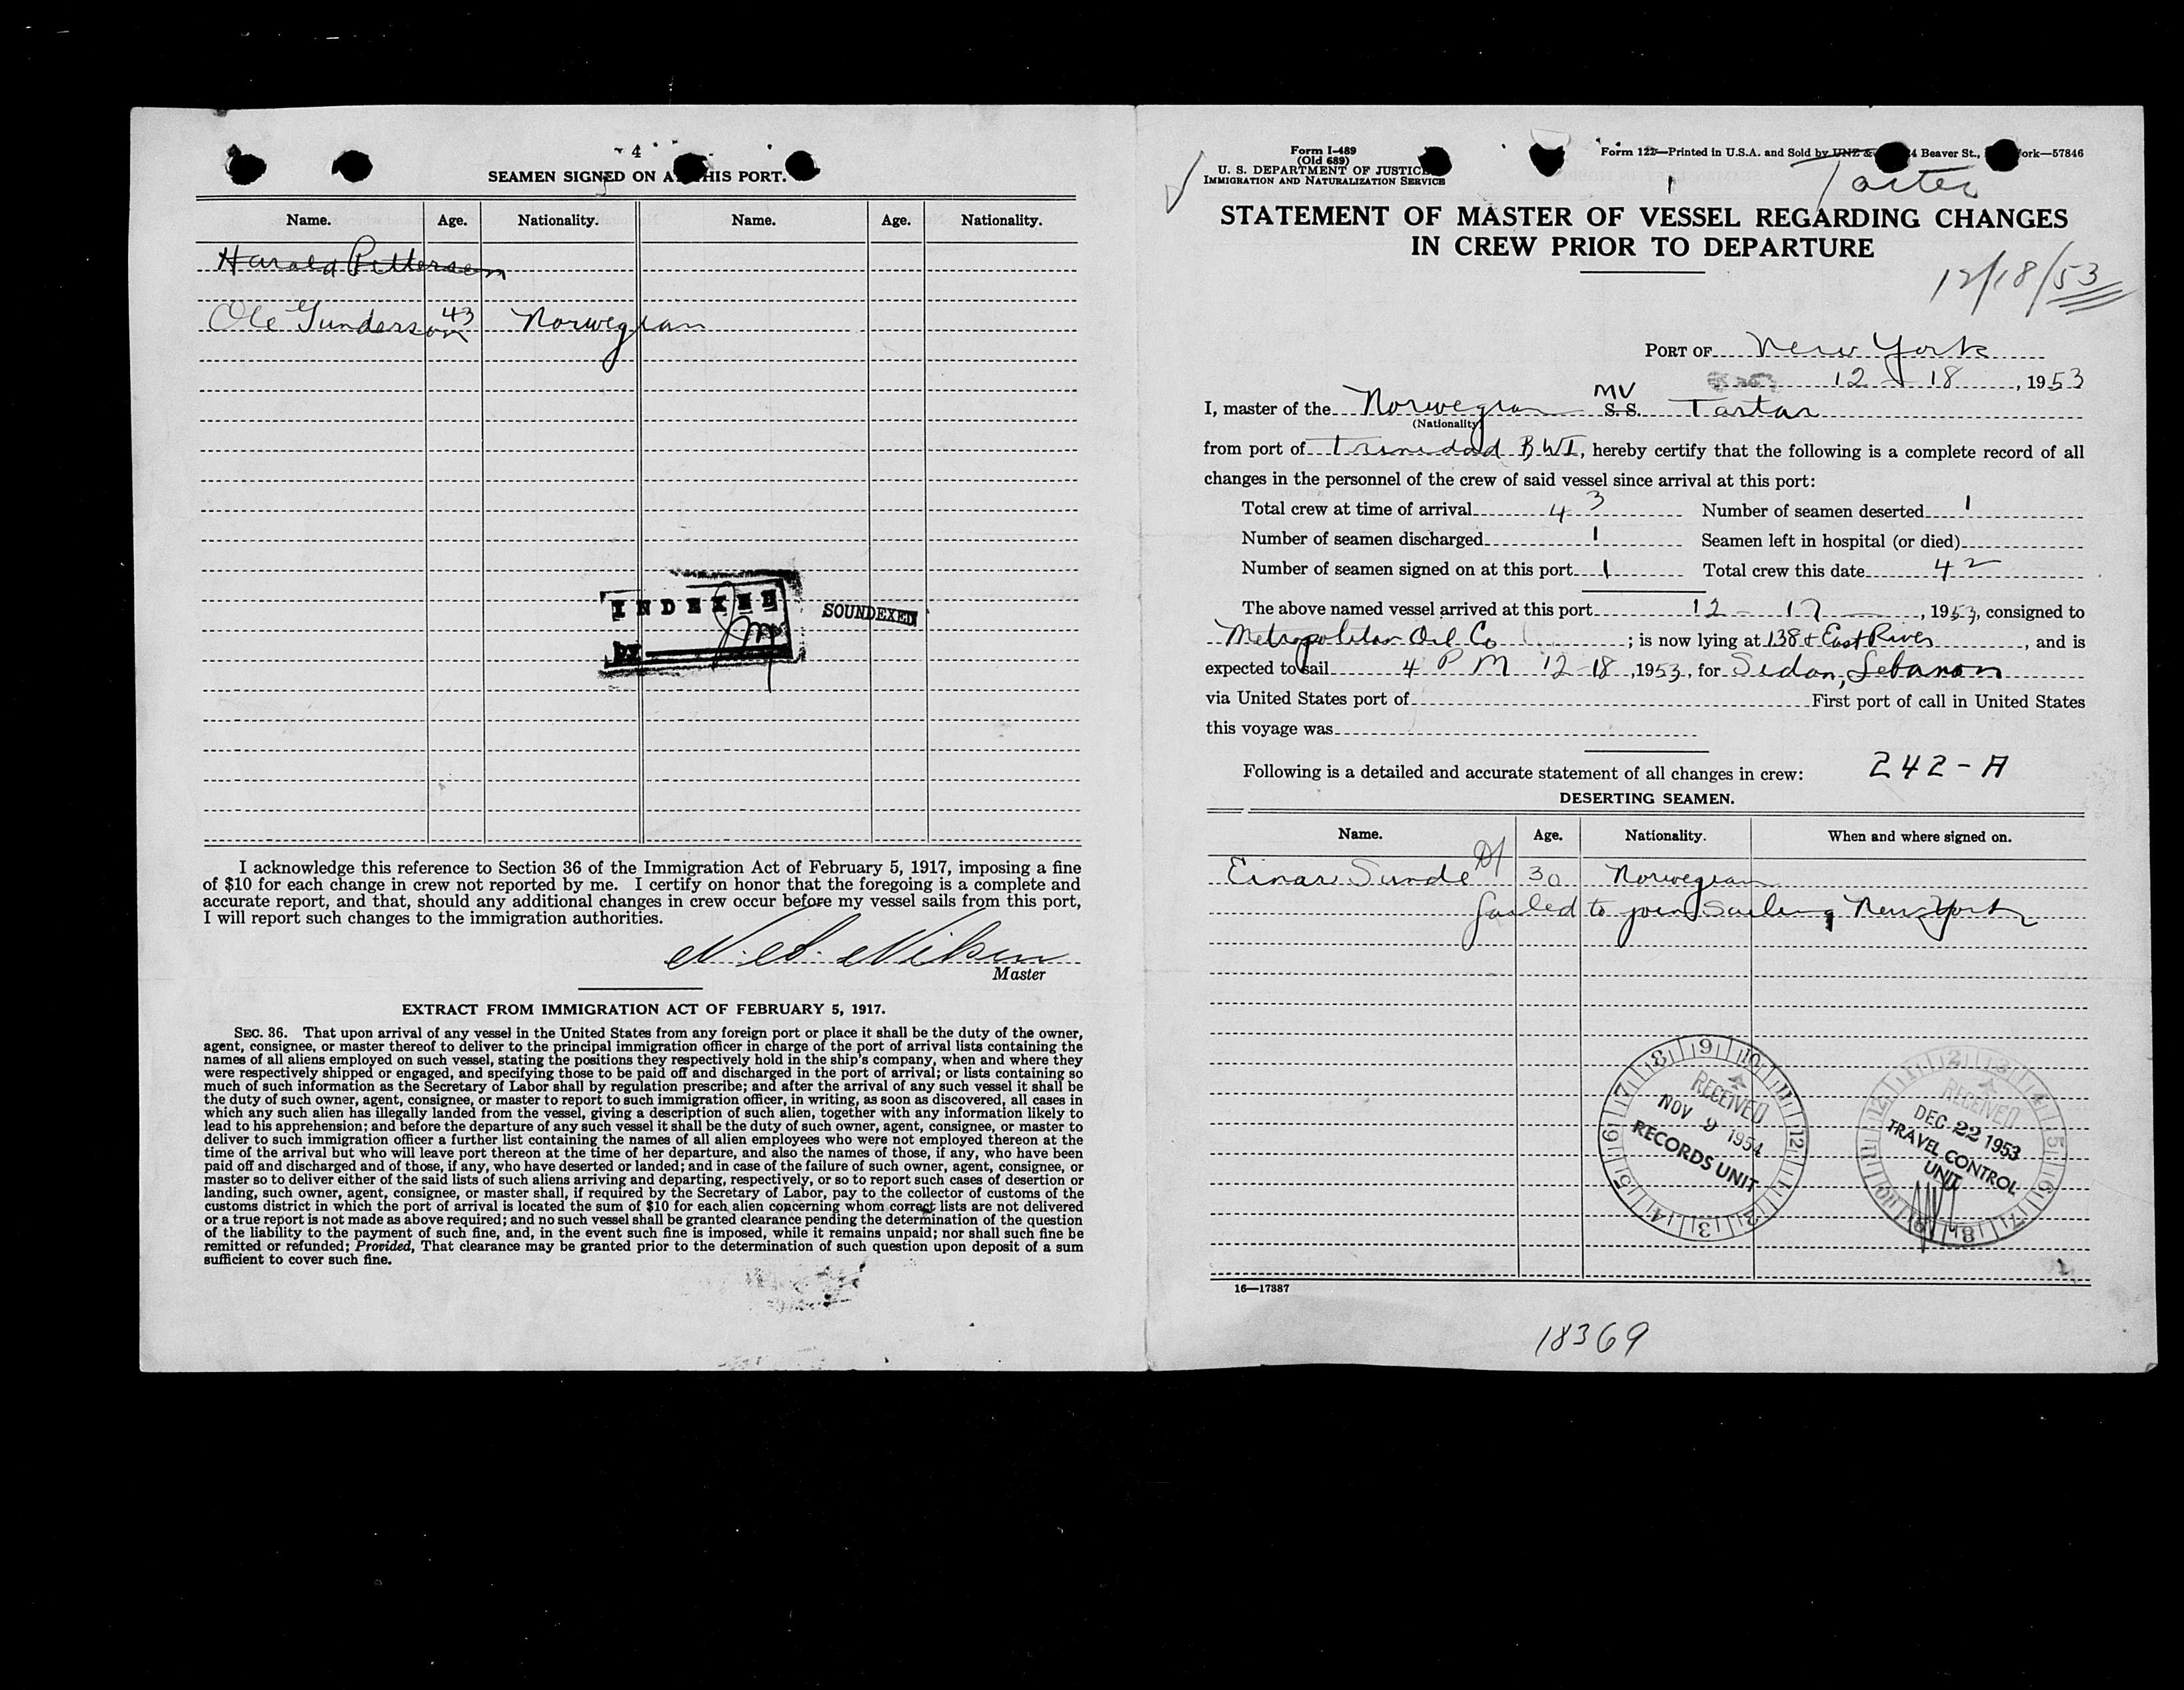 4
SEAMEN SIGNED ON AT THIS PORT.
Name. Age. Nationality. Name. Age. Nationality.
Harald Pettersen
Ole Gunderson 43 Norwegian
INDEXED
BY
SOUNDEXED
I acknowledge this reference to Section 36 of the Immigration Act of February 5, 1917, imposing a fine
of $10 for each change in crew not reported by me. I certify on honor that the foregoing is a complete and
accurate report, and that, should any additional changes in crew occur before my vessel sails from this port,
I will report such changes to the immigration authorities.
Master
EXTRACT FROM IMMIGRATION ACT OF FEBRUARY 5, 1917.
SEC. 36. That upon arrival of any vessel in the United States from any foreign port or place it shall be the duty of the owner,
agent, consignee, or master thereof to deliver to the principal immigration officer in charge of the port of arrival lists containing the
names of all aliens employed on such vessel, stating the positions they respectively hold in the ship's company, when and where they
were respectively shipped or engaged, and specifying those to be paid off and discharged in the port of arrival; or lists containing so
much of such information as the Secretary of Labor shall by regulation prescribe; and after the arrival of any such vessel it shall be
the duty of such owner, agent, consignee, or master to report to such immigration officer, in writing, as soon as discovered, all cases in
which any such alien has illegally landed from the vessel, giving a description of such alien, together with any information likely to
lead to his apprehension; and before the departure of any such vessel it shall be the duty of such owner, agent, consignee, or master to
deliver to such immigration officer a further list containing the names of all alien employees who were not employed thereon at the
time of the arrival but who will leave port thereon at the time of her departure, and also the names of those, if any, who have been
paid off and discharged and of those, if any, who have deserted or landed; and in case of the failure of such owner, agent, consignee, or
master so to deliver either of the said lists of such aliens arriving and departing, respectively, or so to report such cases of desertion or
landing, such owner, agent, consignee, or master shall, if required by the Secretary of Labor, pay to the collector of customs of the
customs district in which the port of arrival is located the sum of $10 for each alien concerning whom correct lists are not delivered
or a true report is not made as above required; and no such vessel shall be granted clearance pending the determination of the question
of the liability to the payment of such fine, and, in the event such fine is imposed, while it remains unpaid; nor shall such fine be
remitted or refunded; Provided, That clearance may be granted prior to the determination of such question upon deposit of a sum
sufficient to cover such fine.
Form I-489
(Old 689)
U. S. DEPARTMENT OF JUSTICE
IMMIGRATION AND NATURALIZATION SERVICE
Form 122—Printed in U.S.A. and Sold by UNZ & 4 Beaver St., ork—57846
STATEMENT OF MASTER OF VESSEL REGARDING CHANGES
IN CREW PRIOR TO DEPARTURE
12/18/53
PORT OF New York
12 - 18, 1953
MV
I, master of the Norwegian S. S. Tartar
(Nationality)
from port of Trinidad BWI, hereby certify that the following is a complete record of all
changes in the personnel of the crew of said vessel since arrival at this port:
Total crew at time of arrival 43 Number of seamen deserted 1
Number of seamen discharged 1 Seamen left in hospital (or died)
Number of seamen signed on at this port 1 Total crew this date 42
The above named vessel arrived at this port 12 - 17, 1953, consigned to
Metropolitan Oil Co; is now lying at 138 & East River, and is
expected to sail 4 P M 12-18, 1953, for Sidon, Lebanon
via United States port of First port of call in United States
this voyage was
Following is a detailed and accurate statement of all changes in crew: 242-A
DESERTING SEAMEN.
Name. Age. Nationality. When and where signed on.
Einar Sunde 30 Norwegian
failed to join sailing New York
RECEIVED
NOV 9 1954
RECORDS UNIT
RECEIVED
DEC 22 1953
TRAVEL CONTROL
UNIT
16—17387
18369